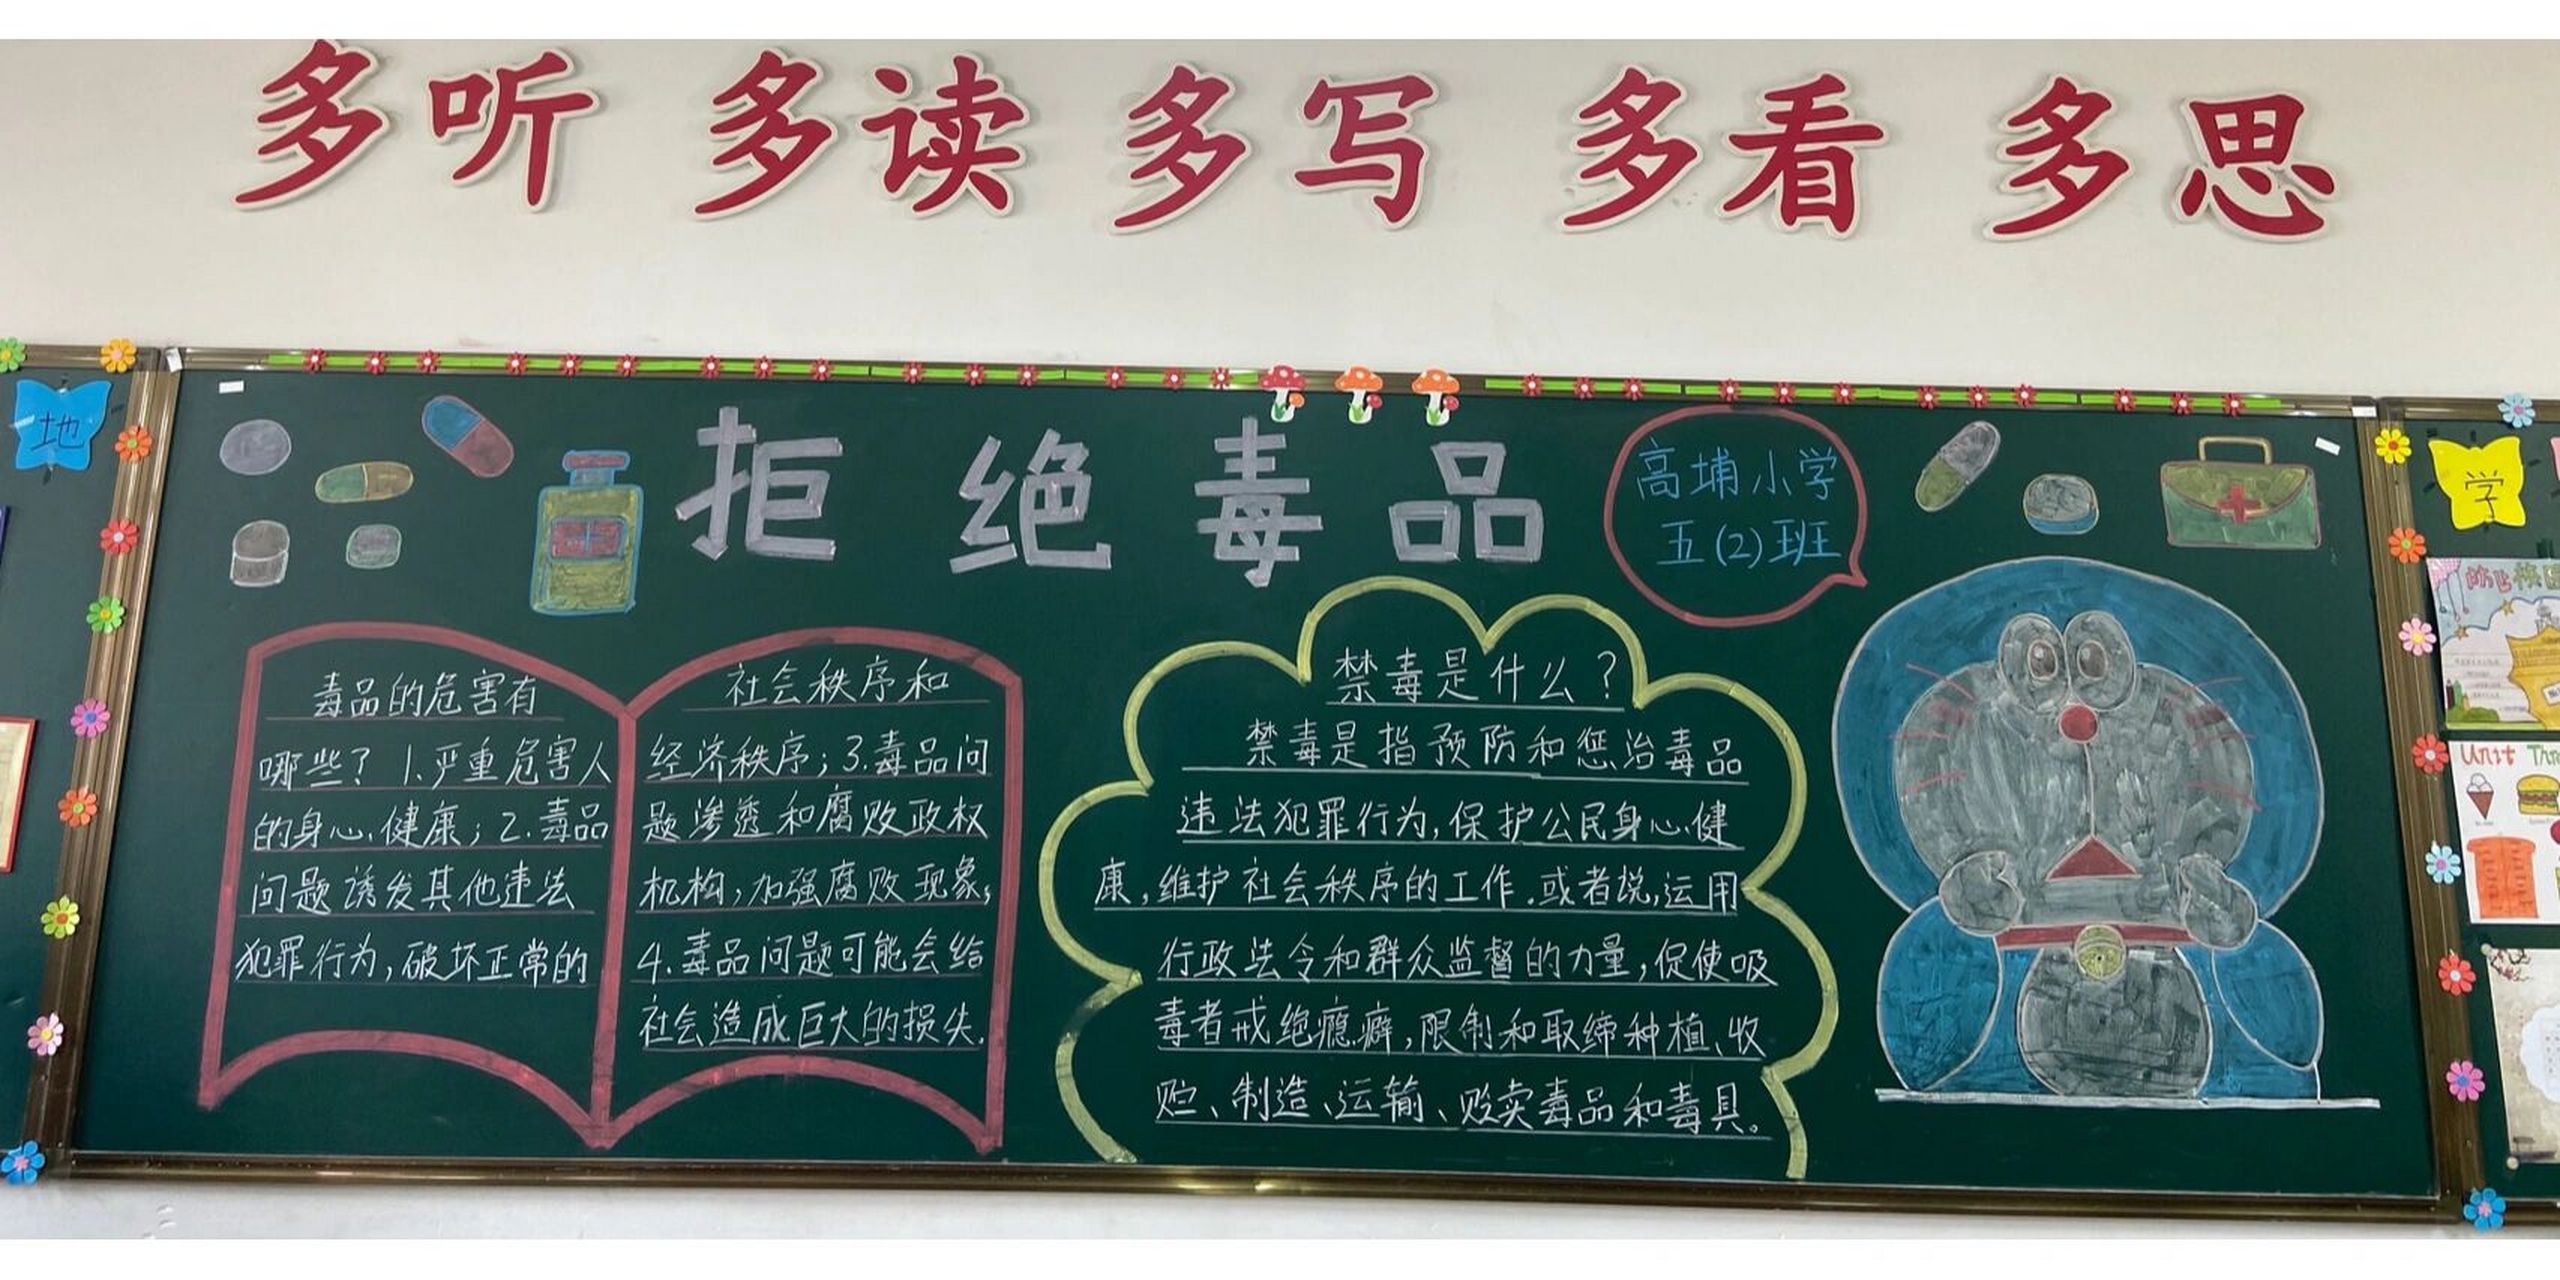 多听 多读 多写 多看 多思
地
拒绝毒品
高埔小学
五(2)班
学
毒品的危害有
哪些？1.严重危害人
的身心健康；2.毒品
问题诱发其他违法
犯罪行为，破坏正常的
社会秩序和
经济秩序；3.毒品问
题渗透和腐败政权
机构，加强腐败现象；
4.毒品问题可能会给
社会造成巨大的损失.
禁毒是什么？
禁毒是指预防和惩治毒品
违法犯罪行为，保护公民身心健
康，维护社会秩序的工作.或者说，运用
行政法令和群众监督的力量，促使吸
毒者戒绝瘾癖，限制和取缔种植、收
贮、制造、运输、贩卖毒品和毒具。
Unit